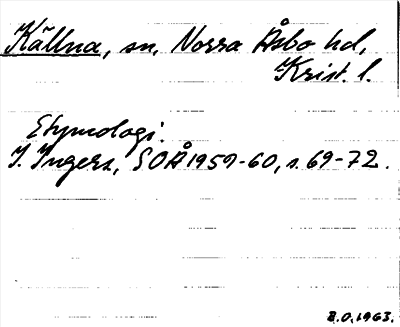 Källna, sn, Norra Åsbo hd,
Krist. l.
Etymologi.
I. Ingers, SOÅ 1959-60, s. 69-72.
1963.